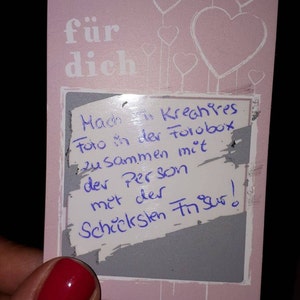 für
dich
Mach ein Kreatives
Foto in der Fotobox
zusammen mit
der Person
mit der
Schicksten Frisur!